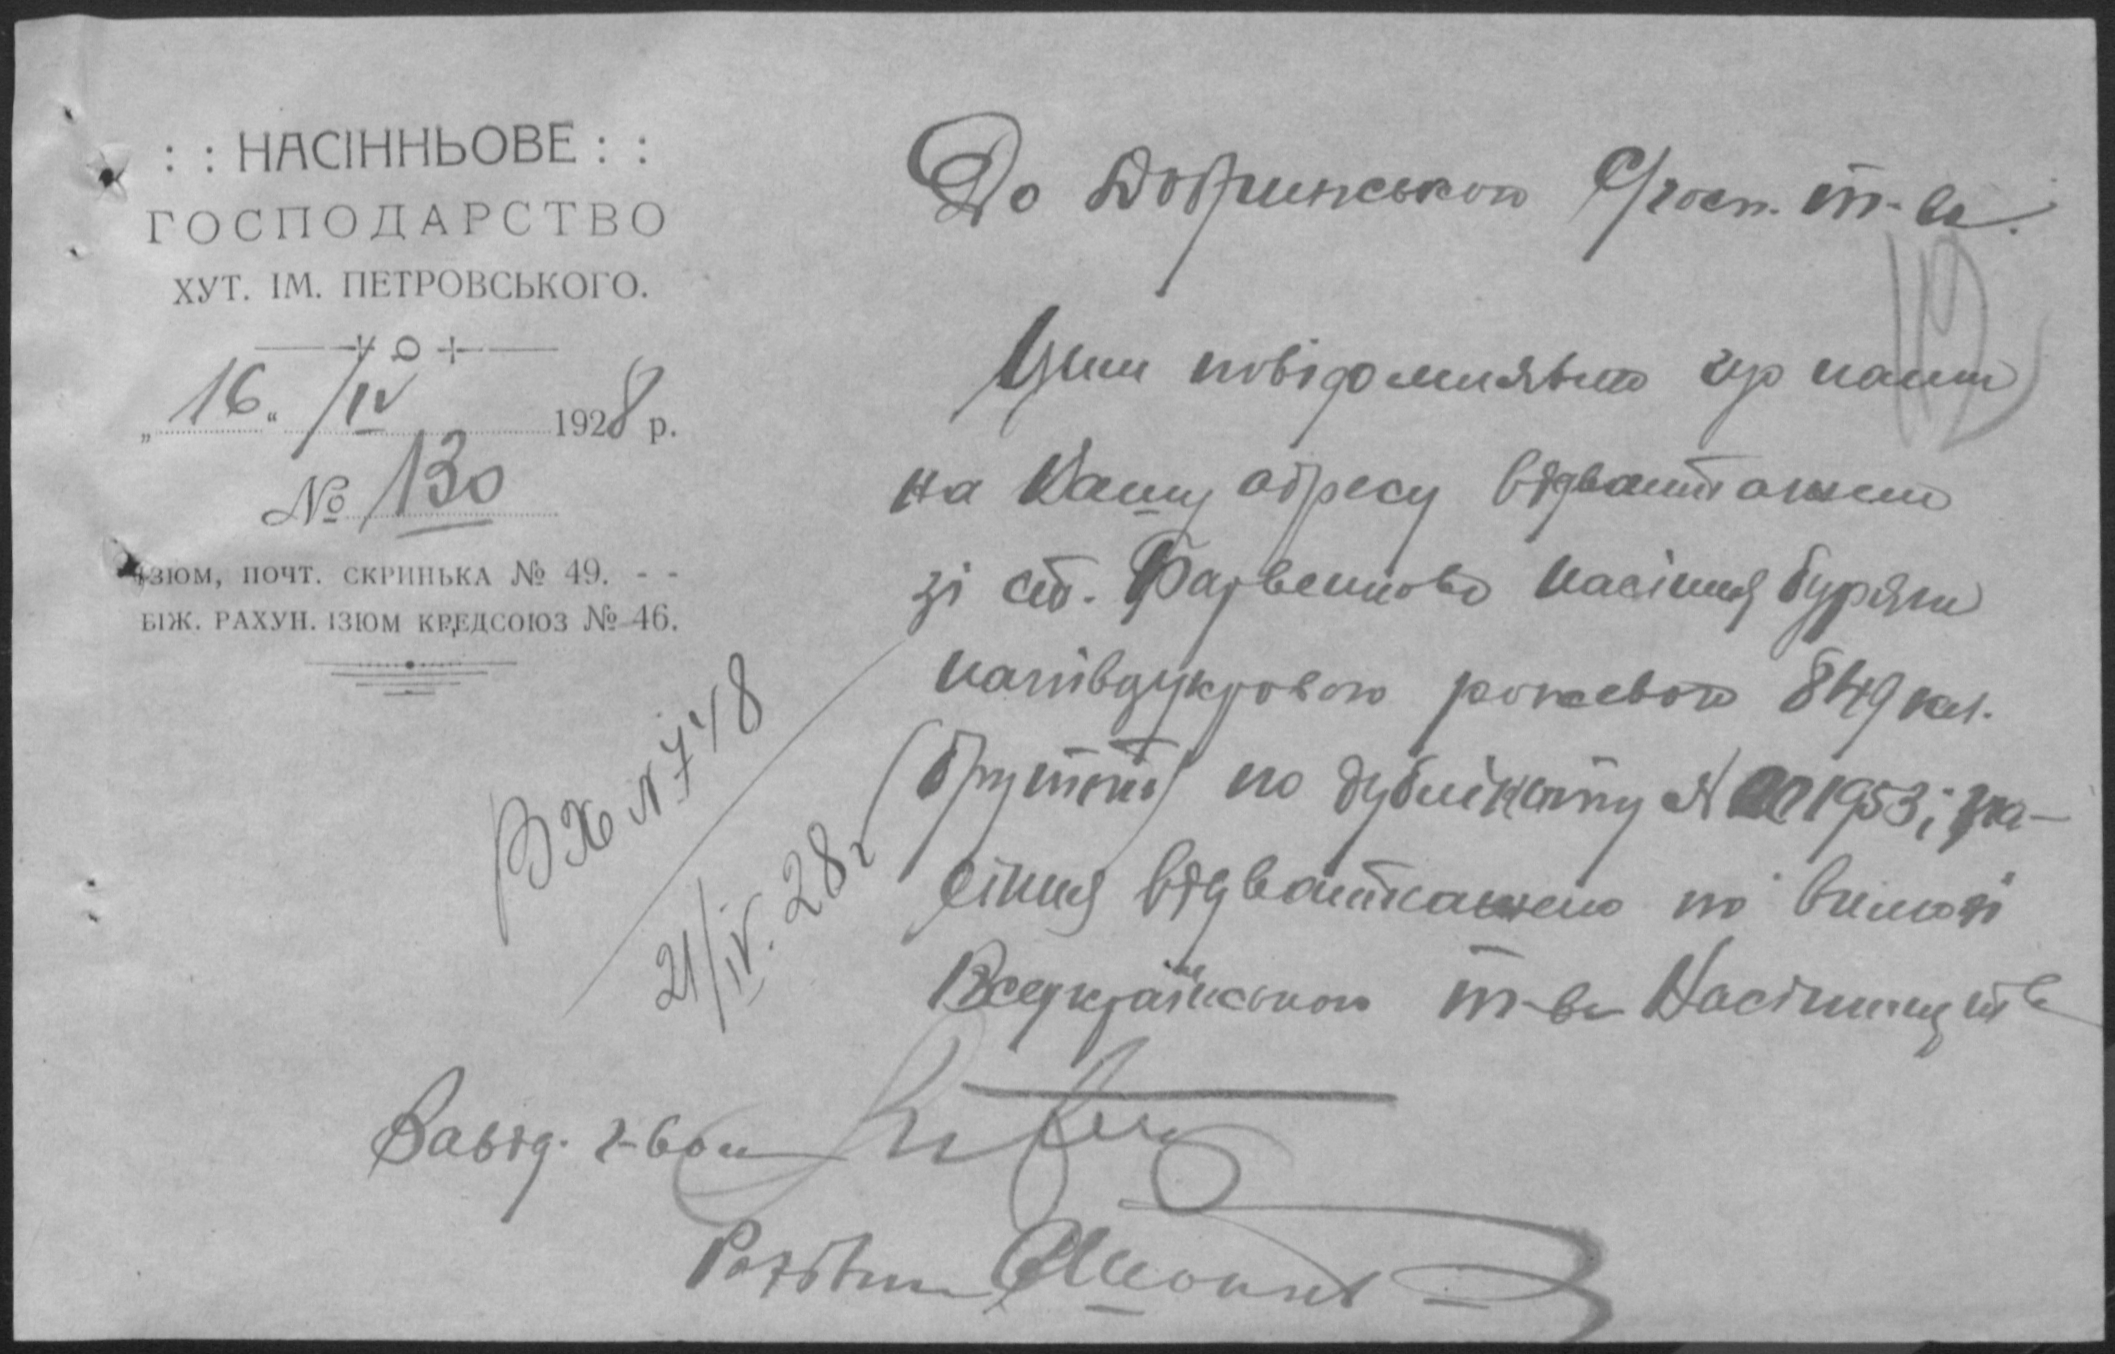 : : НАСІННЬОВЕ : :
ГОСПОДАРСТВО
ХУТ. ІМ. ПЕТРОВСЬКОГО.
„16“ /IV 1928 р.
№ 130
ІЗЮМ, ПОЧТ. СКРИНЬКА № 49. - -
БІЖ. РАХУН. ІЗЮМ КРЕДСОЮЗ № 46.
До Добринського С/госп. т-ва.
112
Цим повідомляємо що нами
на Вашу адресу відвантажено
зі ст. Барвенково насіння буряку
напівцукрового рожевого 849 кіл.
(брутто) по дублікату № 1953; на-
сіння відвантажено по вимозі
Всеукраїнського т-ва Насінництв
Вх № 748
21/IV. 28 г
Завід. г-вом